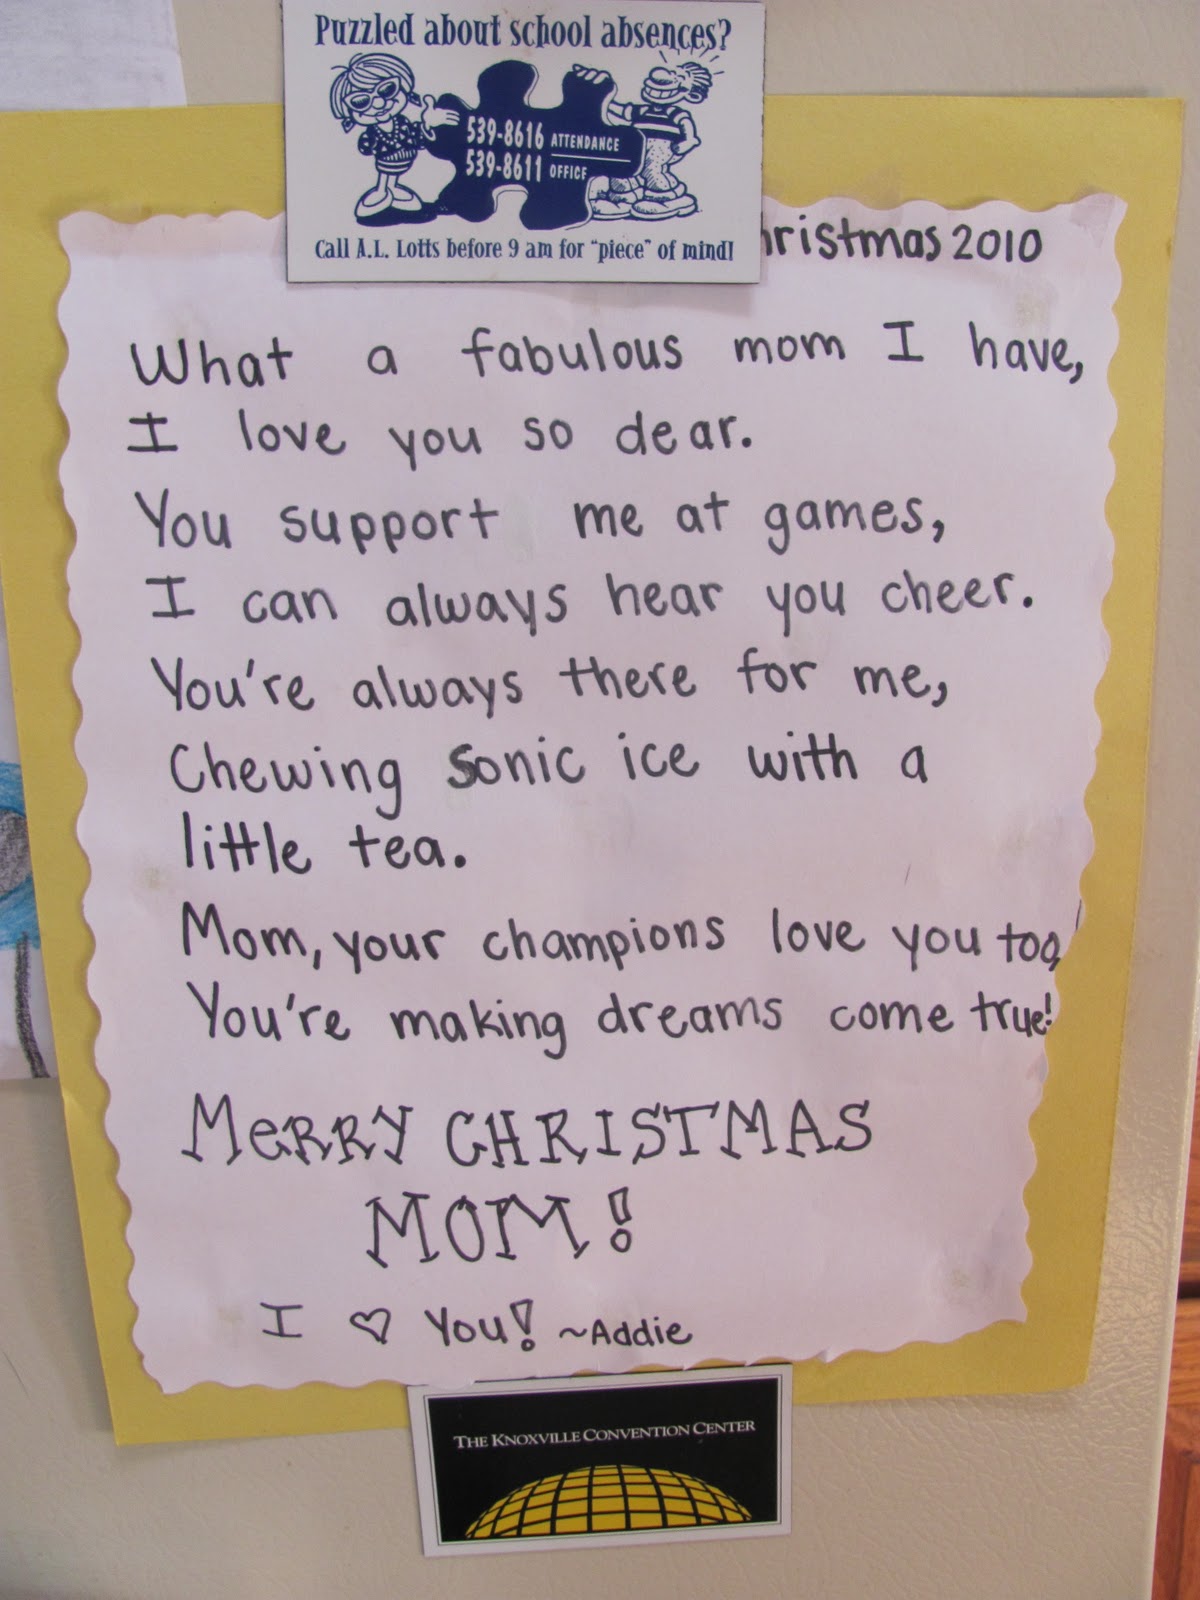 Puzzled about school absences?
539-8616 ATTENDANCE
539-8611 OFFICE
Call A.L. Lotts before 9 am for "piece" of mind!
hristmas 2010
What a fabulous mom I have,
I love you so dear.
You support me at games,
I can always hear you cheer.
You're always there for me,
Chewing sonic ice with a
little tea.
Mom, your champions love you too,
You're making dreams come true!
MERRY CHRISTMAS
MOM!
I ♡ You! ~Addie
THE KNOXVILLE CONVENTION CENTER